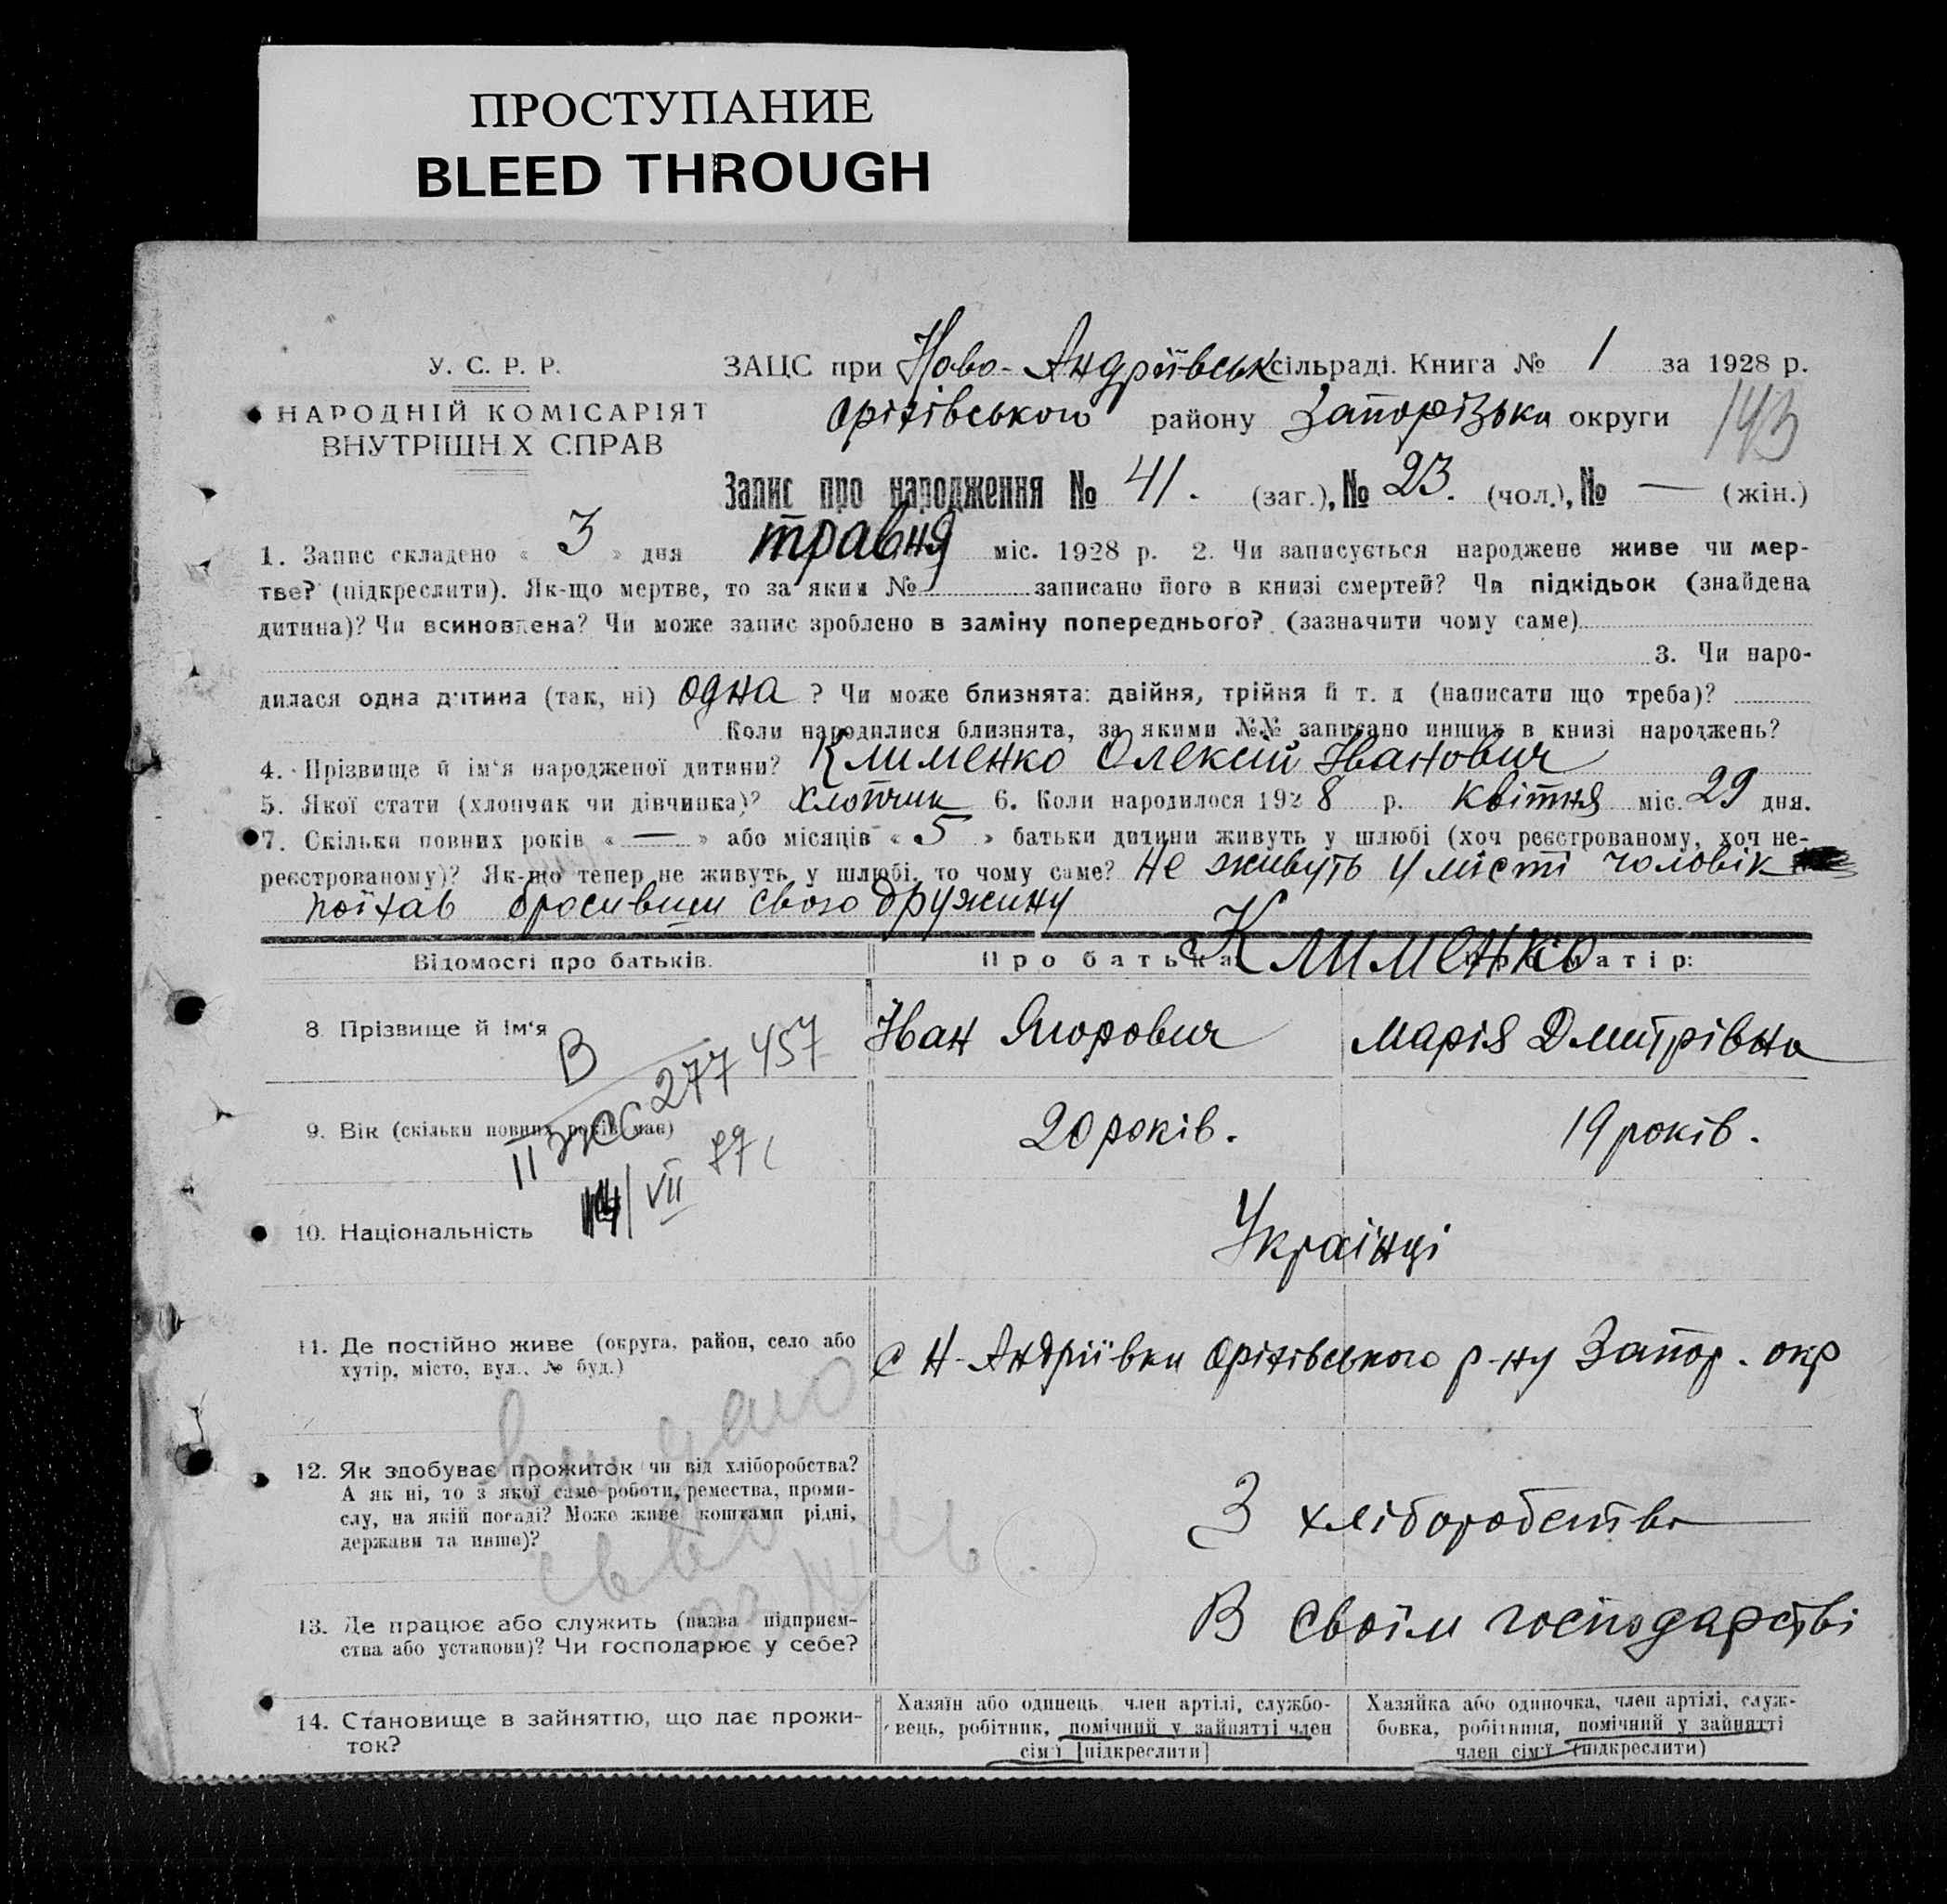 ПРОСТУПАНИЕ
BLEED THROUGH
У. С. Р. Р.
НАРОДНІЙ КОМІСАРІЯТ
ВНУТРІШН Х СПРАВ
ЗАЦС при Ново-Андріївськ сільраді. Книга № 1 за 1928 р.
Оріхівського району Запорізька округи
143
Запис про народження № 41. (заг.), № 23. (чол.), № — (жін.)
1. Запис складено « 3 » дня травня міс. 1928 р. 2. Чи записується народжене живе чи мер-
тве? (підкреслити). Як-що мертве, то за яким № записано його в книзі смертей? Чи підкідьок (знайдена
дитина)? Чи всиновлена? Чи може запис зроблено в заміну попереднього? (зазначити чому саме)
3. Чи наро-
дилася одна дитина (так, ні) одна ? Чи може близнята: двійня, трійня й т. д (написати що треба)?
Коли народилися близнята, за якими №№ записано инших в книзі народжень?
4. Прізвище й ім'я народженої дитини? Клименко Олексій Іванович
5. Якої стати (хлопчик чи дівчинка)? хлопчик 6. Коли народилося 1928 р. квітня міс. 29 дня.
7. Скільки повних років « — » або місяців « 5 » батьки дитини живуть у шлюбі (хоч реєстрованому, хоч не-
реєстрованому)? Як-що тепер не живуть у шлюбі, то чому саме? Не живуть у місті чоловік
поїхав бросивши свого дружину
Відомості про батьків.
Про батька
матір:
Клименко
8. Прізвище й ім'я
Іван Ягорович
Марія Дмитрівна
В
277 457
9. Вік (скільки повних років має)
20 років.
19 років.
VII
10. Національність
Українці
11. Де постійно живе (округа, район, село або
хутір, місто, вул., № буд.)
с Н-Андріївки Оріхівського р-ну Запор. окр
видано
12. Як здобуває прожиток чи від хліборобства?
А як ні, то з якої саме роботи, ремества, проми-
слу, на якій посаді? Може живе коштами рідні,
держави та инше)?
З хліборобства
13. Де працює або служить (назва підприєм-
ства або установи)? Чи господарює у себе?
В своїм господарстві
14. Становище в зайняттю, що дає прожи-
ток?
Хазяїн або одинець, член артілі, службо-
вець, робітник, помічний у зайнятті член
сім'ї [підкреслити]
Хазяйка або одиночка, член артілі, служ-
бовка, робітниця, помічний у зайнятті
член сім'ї (підкреслити)